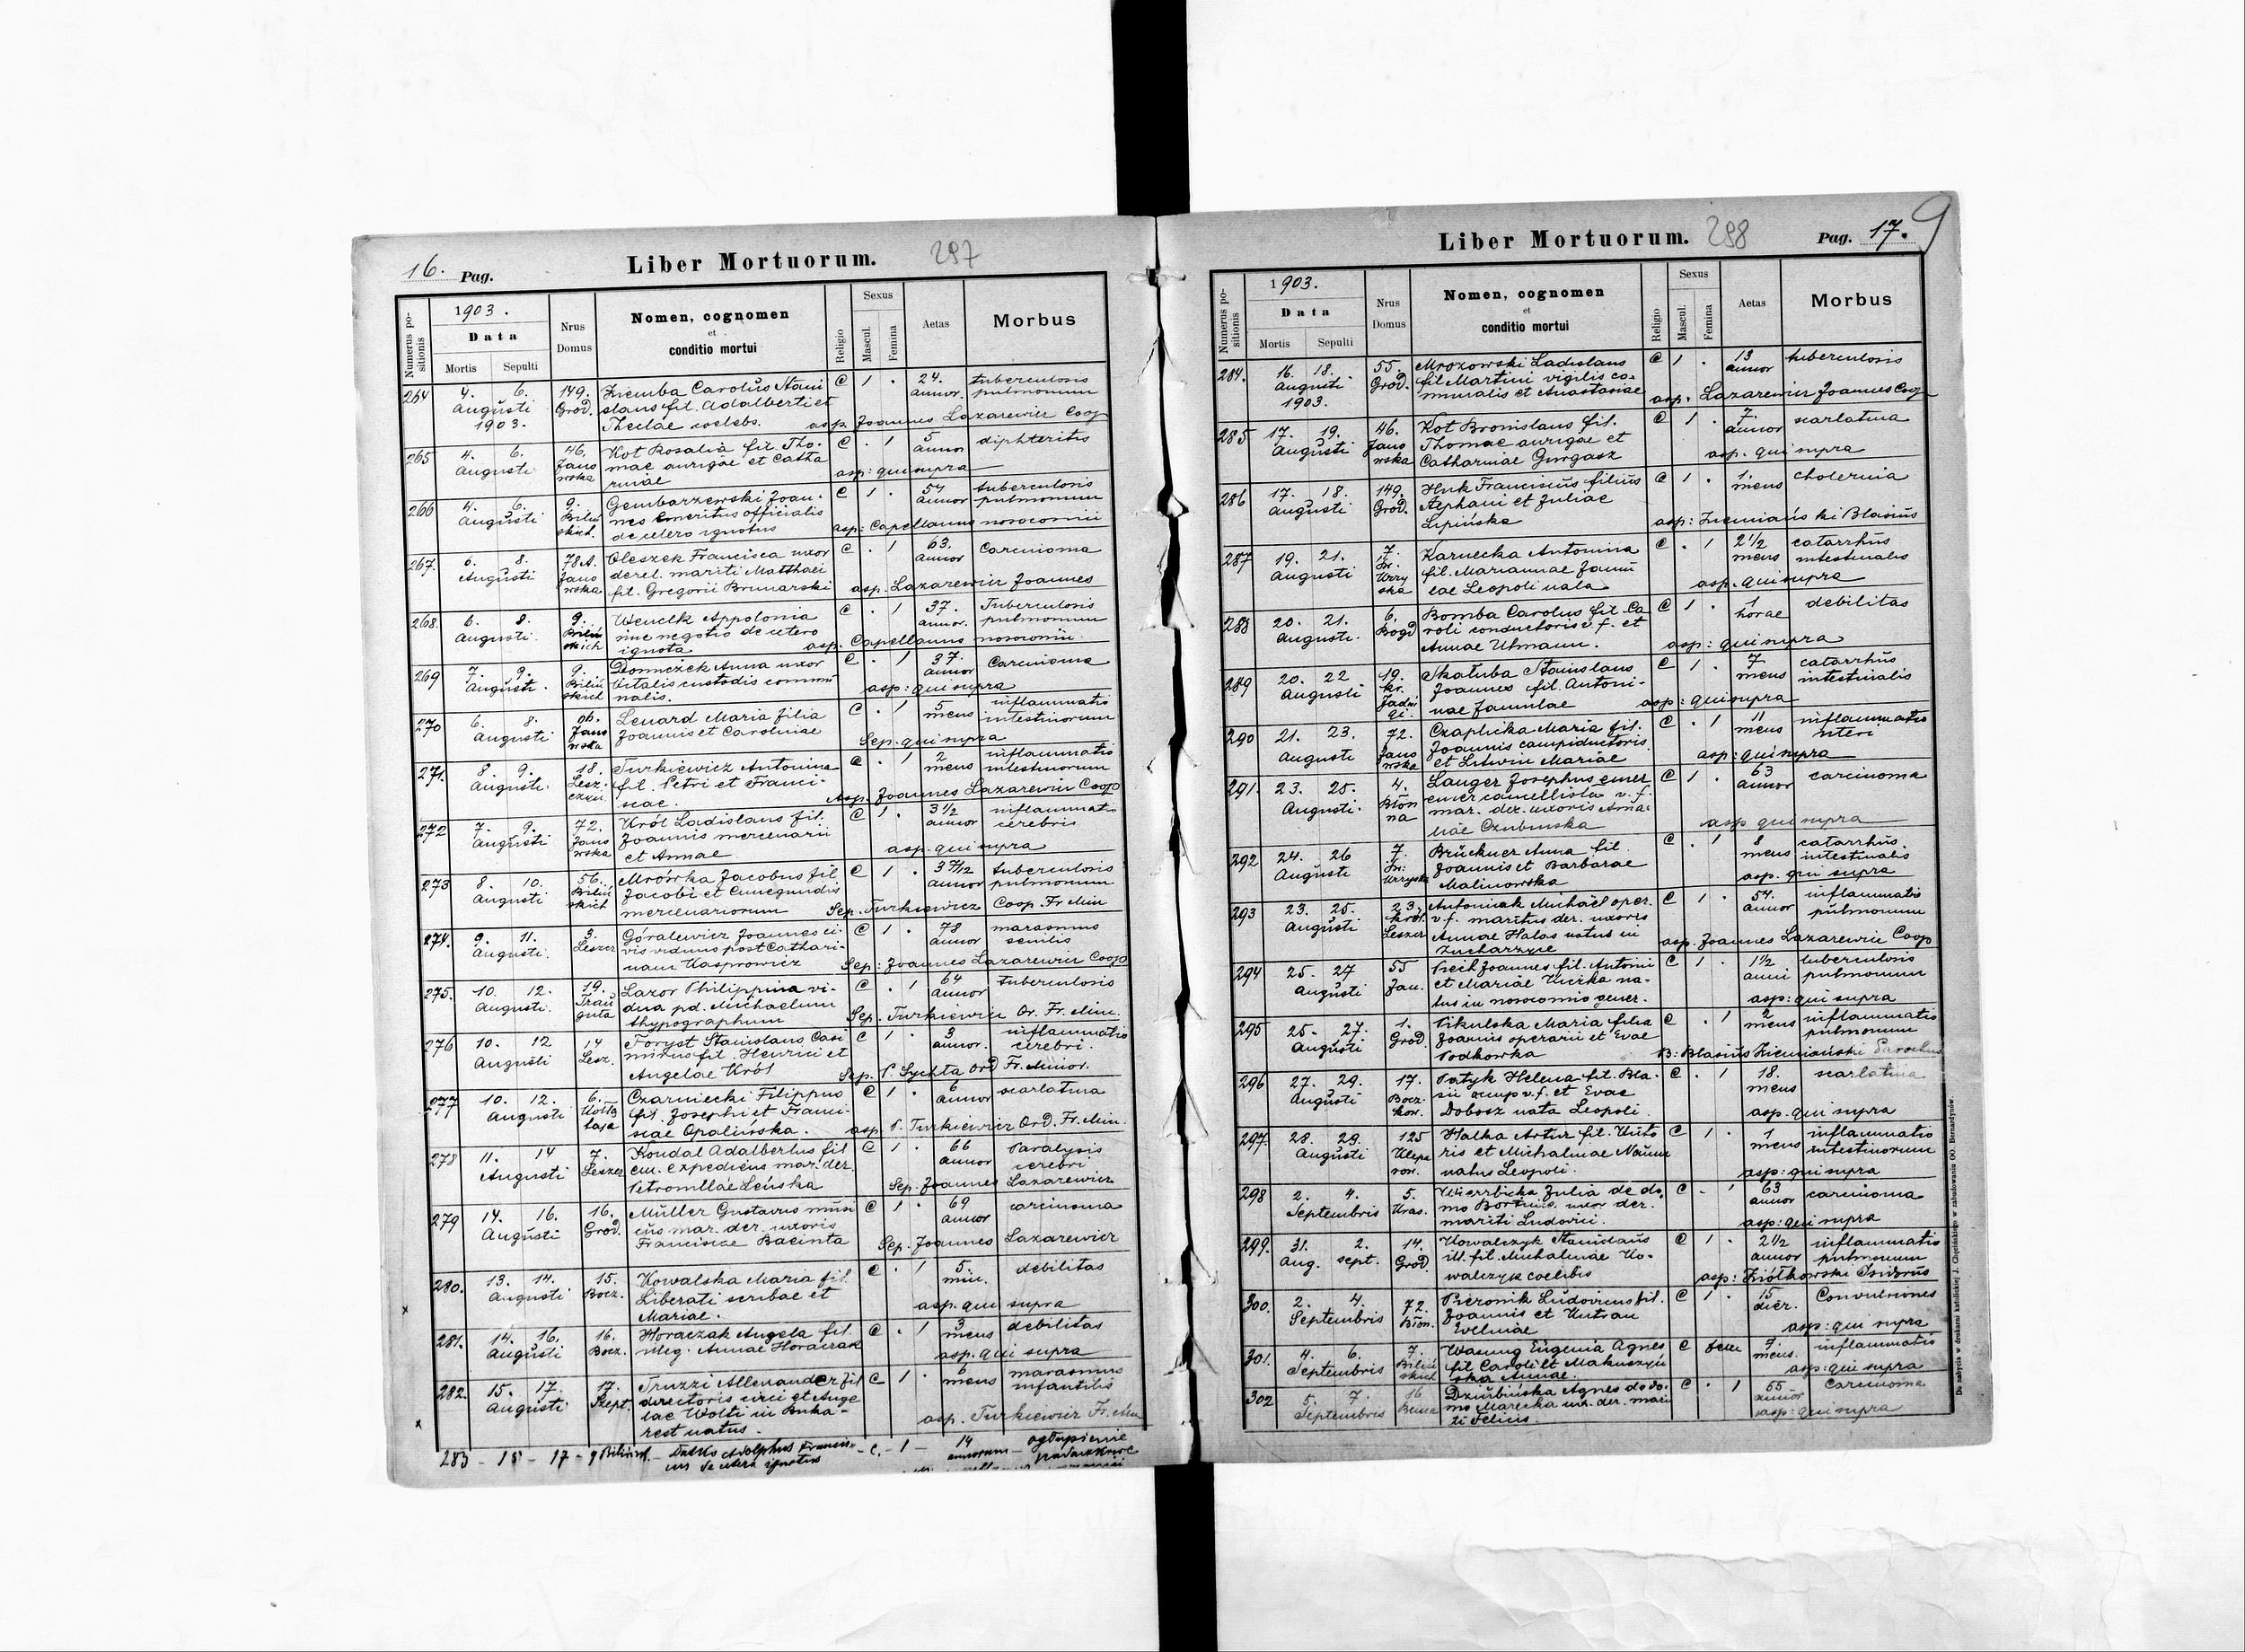 16. Pag.
Liber Mortuorum. 297
Numerus positionis
1903.
Data
Mortis Sepulti
Nrus Domus
Nomen, cognomen
et
conditio mortui
Religio
Sexus
Mascul. Femina
Aetas
Morbus
264 4. 6. 149. Ziemba Carolus Stani C 1 . 24. tuberculosis
Augusti Grod. slaus fil. Adalberti et annor. pulmonum
1903. Theclae coelebs. asp. Joannes Lazarewicz Coop
265 4. 6. 46. Kot Rosalia fil. Tho- C . 1 5 diphteritis
Augusti Jano mae aurigae et Catha annor
wska rinae asp: qui supra
266 4. 6. 9. Gembarzewski Joan- C 1 . 54 tuberculosis
Augusti Biliń nes Emeritus officialis annor pulmonum
skich. de cetero ignotus asp: Capellanus nosocomii
267. 6. 8. 78A. Oleszek Francisca uxor C . 1 63. Carcinoma
Augusti Jano derel. mariti Matthaei annor
wska fil. Gregorii Brunarski asp. Lazarewicz Joannes
268. 6. 8. 9. Wencek Appolonia C . 1 37. Tuberculosis
Augusti. Biliń sine negotio de cetero annor. pulmonum
skich ignota asp. Capellanus nosocomii.
269 7. 9. 9. Domiczek Anna uxor C . 1 37. Carcinoma
Augusti. Biliń Vitalis custodis commu- annor
skich nalis. asp: qui supra
270 6. 8. 06. Lenard Maria filia C . 1 5 inflammatio
Augusti Jano Joannis et Carolinae mens intestinorum
wska Sep. qui supra
271. 8. 9. 18. Turkiewicz Antonina C . 1 2 inflammatio
Augusti. Lesz- fil. Petri et Franci- mens intestinorum
czyń. scae. Asp. Joannes Lazarewicz Coop
272 7. 9. 72. Król Ladislaus fil. C 1 . 3 1/2 inflammat-
Augusti Jano Joannis mercenarii annor cerebris
wska et Annae asp. qui supra
273 8. 10. 56. Mrówka Jacobus fil C 1 . 3 7/12 tuberculosis
Augusti Biliń Jacobi et Cunegundis annor pulmonum
skich mercenariorum Sep. Turkiewicz Coop. Fr. Min
274. 9. 11. 3. Góralewicz Joannes ci- C 1 . 78 marasmus
Augusti. Leszcz vis viduus post Cathari- annor senilis
nam Kasprowicz Sep: Joannes Lazarewicz Coop
275. 10. 12. 19. Lazor Philippina vi- C . 1 64 tuberculosis
Augusti. Trau dua pd. Michaelum annor
guta thypographum Sep. Turkiewicz Or. Fr. Min.
276 10. 12 14 Foryst Stanislaus Casi C 1 . 3 inflammatio
Augusti Lesz. mirus fil. Henrici et annor. cerebri.
Angelae Król Sep. P. Sychta Ord Fr. Minor.
277 10. 12. 6. Czarniecki Filippus C 1 . 6 scarlatina
Augusti Kołłą fil. Josephi et Franci- annor
taja scae Opalińska. asp P. Turkiewicz Ord. Fr. Min.
278 11. 14 7. Kondal Adalbertus fil C 1 . 66 Paralysis
Augusti Leszcz em. expediens mar. der. annor cerebri
Petronillae Leńska Sep. Joannes Lazarewicz
279 14. 16. 16. Müller Gustavus musi C 1 . 69 carcinoma
Augusti Grod. cus mar. der. uxoris annor
Francisce Bacinta Sep. Joannes Lazarewicz
280. 13. 14. 15. Kowalska Maria fil. C . 1 5. debilitas
Augusti Bocz. Liberati scribae et min.
x Mariae. asp. qui supra
281. 14. 16. 16. Horaczak Angela fil. C . 1 3 debilitas
Augusti Bocz. illeg. Annae Horaczak mens
asp. qui supra
282. 15. 17. 17. Truzzi Allexander fil C 1 . 6 marasmus
Augusti Szept. directoris circi et Ange mens infantilis
lae Wolti in Buka-
x rest natus. asp. Turkiewicz Fr. Min
283 - 15 - 17 - 9 Bilińsk. Adolphus Francis- - C. - 1 - 14 ogłupienie
cus de cetera ignotus annorum
Liber Mortuorum. 298 Pag. 17. 9
Numerus positionis
1903.
Data
Mortis Sepulti
Nrus Domus
Nomen, cognomen
et
conditio mortui
Religio
Sexus
Mascul. Femina
Aetas
Morbus
284. 16. 18. 55. Mrozowski Ladislaus C 1 . 13 tuberculosis
Augusti Grod. fil Martini vigilis co- annor
1903. mmunalis et Anastasiae asp. Lazarewicz Joannes Coop
285 17. 19. 46. Kot Bronislaus fil. C 1 . 7. scarlatina
Augusti Jano Thomae aurigae et annor
wska Catharinae Gurgasz asp. qui supra
286 17. 18. 149. Huk Franciscus filius C 1 . 1. cholernia
Augusti Grod. Stephani et Juliae mens
Lipińska asp: Ziemiański Blasius
287 19. 21. 7. Karnecka Antonina C . 1 2 1/2 catarrhus
Augusti Św. fil. Mariannae Famu mens intestinalis
Urzy lae Leopoli nata asp. qui supra
ska
288 20. 21. 6. Bomba Carolus fil. Ca C 1 . 1 debilitas
Augusti. Bogd roli conductoris v. f. et horae
Annae Uhmann. asp: qui supra
289 20. 22 19. Skałuba Stanislaus C 1 . 7 catarrhus
Augusti kr. Joannes fil. Antoni- mens intestinalis
Jadwi nae famulae asp: qui supra
gi.
290 21. 23. 72. Czaplicka Maria fil. C . 1 11 inflammatio
Augusti Jano Joannis campiductoris mens
wska et Litwin Mariae asp: qui supra
291. 23. 25. 4. Langer Josephus emer C 1 . 63 carcinoma
Augusti. Błon emer cancellista v. f. annor
na mar. der. uxoris Ama-
liae Czubinska asp qui supra
292 24. 26 7. Brückner Anna fil. C . 1 8 catarrhus.
Augusti Św: Joannis et Barbarae mens intestinalis
Urzyska Malinowska asp. qui supra
293 23. 25. 23. Antoniak Michael oper. C 1 . 54. inflammatio
Augusti król. v. f. maritus der. uxoris annor pulmonum
Leszcz Annae Halas natus in
Zucharzyce asp. Joannes Lazarewicz Coop
294 25. 27 55 Joannes fil. Antoni C 1 . 1 1/2 tuberculosis
Augusti Jan. et Mariae na- anni pulmonum
tus in nosocomio gener. asp: qui supra
295 25. 27. 1. Pikulska Maria filia C . 1 2 inflammatio
Augusti Grod. Joannis operarii et Evae mens pulmonum
Podkówka B: Blasius Ziemiański Parochus
296 27. 29. 17. Patyk Helena fil. Bla- C . 1 18. scarlatina
Augusti Bocz- sii v. f. et Evae mens
kow. Dobosz nata Leopoli. asp. qui supra
297. 28. 29. 125 Halka Artur fil. Victo C 1 . 1 inflammatio
Augusti Klepa ris et Michalinae mens intestinorum
row. natus Leopoli. asp: qui supra
298 2. 4. 5. Wierzbicka Julia de do C . 1 63 carcinoma
Septembris Kras. mo uxor der. annor
mariti Ludovici. asp: qui supra
299. 31. 2. 14. Kowalczyk Stanislaus C 1 . 2 1/2 inflammatio
Aug. sept. Grod. ill. fil. Michalinae Ko- annor pulmonum
walczyk coelibis asp: Ziółkowski Isidorus
300. 2. 4. 72. Pieronik Ludovicus fil. C 1 . 15 Convulsiones
Septembris Błon. Joannis et Kutrau dier.
Evelinae asp: qui supra
301. 4. 6. 7. Wasung Eugenia Agnes C fem 7 inflammatio
Septembris Biliń fil Caroli et Makuszyń mens.
skich ska Annae. asp: qui supra
302 5. 7. 16 Dziubińska Agnes de do- C . 1 55 Carcinoma
Septembris mo Marecka ux. der. mari annor
ti Felicis. asp: qui supra
Do nabycia w drukarni katolickiej J. Chęcińskiego w zabudowaniu OO. Bernardynów.